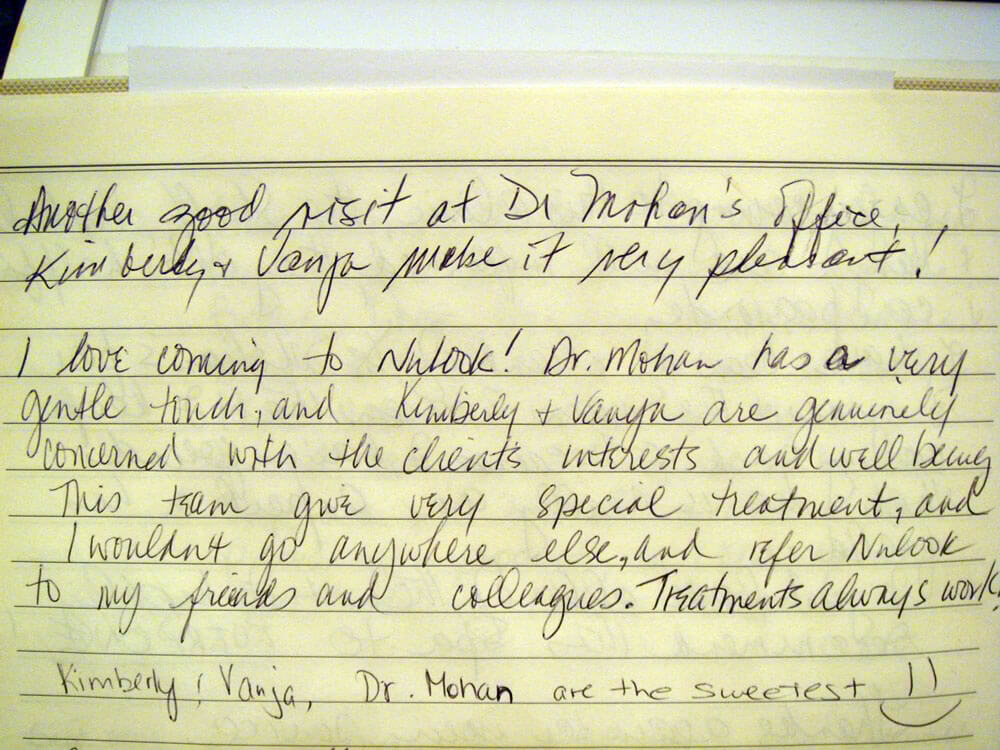 Another good visit at Dr Mohan's office,
Kimberly + Vanja make it very pleasant!
I love coming to Nulook! Dr. Mohan has a very
gentle touch, and Kimberly + Vanya are genuinely
concerned with the client's interests and well being
This team give very special treatment, and
I wouldn't go anywhere else, and refer Nulook
to my friends and colleagues. Treatments always work!
Kimberly & Vanja, Dr. Mohan are the sweetest